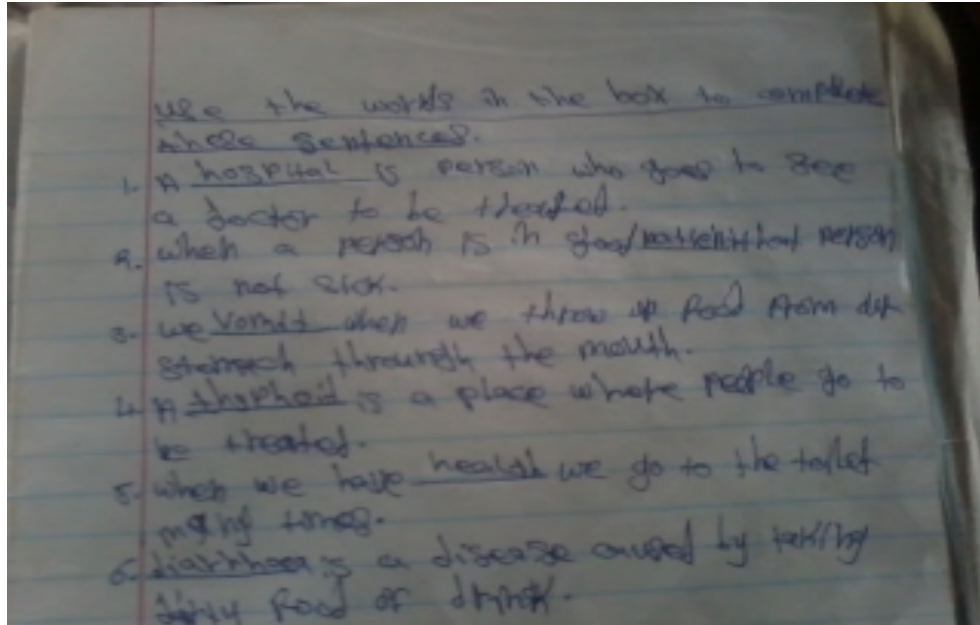 use the words in the box to complete
these sentences.
1. A hospital is person who goes to see
a doctor to be treated.
2. when a person is in good patient that person
is not sick.
3. we vomit when we throw up food from our
stomach through the mouth.
4. A thypheid is a place where people go to
be treated.
5. when we have health we go to the toilet
many times.
6. diarrhoea is a disease caused by taking
dirty food or drink.